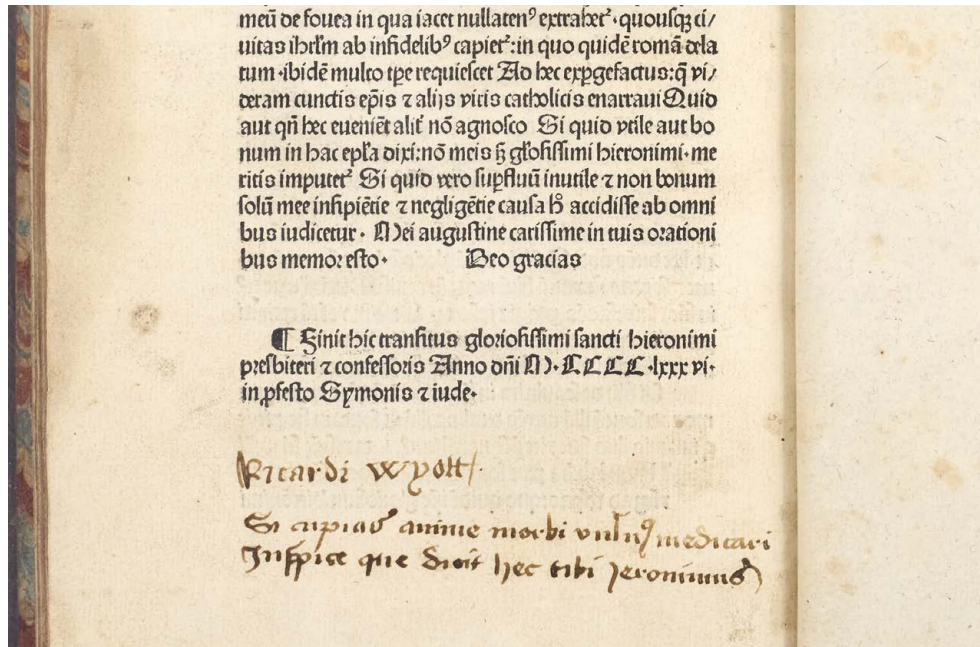 meū de fouea in qua iacet nullatenꝰ extrahetᷣ · quousqꝫ ci/
uitas ihrlm̄ ab infidelibꝰ capietᷣ : in quo quidē romā dela
tum · ibidē multo tp̄e requiescet Ad hec exꝑgefactus : q̄ vi/
deram cunctis ep̄is ⁊ alijs viris catholicis enarraui Quid
aut qn̄ hec eueniēt alit̄ nō agnosco Si quid vtile aut bo
num in hac ep̄la dixi : nō meis ꝫ gl̄osissimi hieronimi · me
ritis imputetᷣ Si quid vero suꝑfluū inutile ⁊ non bonum
solū mee insipiētie ⁊ negligētie causa h̄ accidisse ab omni
bus iudicetur · Mei augustine carissime in tuis orationi
bus memor esto · Deo gracias
¶ Finit hic transitus gloriosissimi sancti hieronimi
presbiteri ⁊ confessoris Anno dn̄i M · CCCC · lxxx vi ·
in ꝓfesto Symonis ⁊ iude ·
Ricardi Wyott /
Si cupias anime morbi vulnꝰ medicari
Inspice que dicit hec tibi Jeronimus